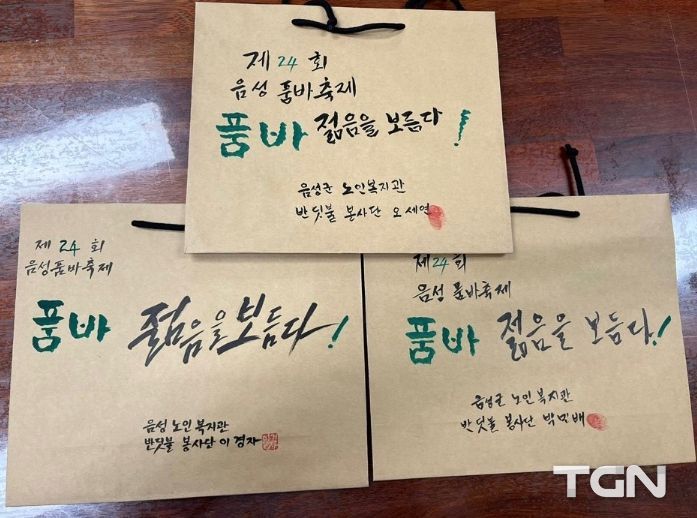 제 24 회
음성 품바축제
품바 젊음을 보듬다!
음성군 노인복지관
반딧불 봉사단 오세연
제 24 회
음성품바축제
품바 젊음을보듬다!
음성 노인복지관
반딧불 봉사단 이경자
제24회
음성 품바축제
품바 젊음을 보듬다!
음성군 노인복지관
반딧불 봉사단 박민배
TGN